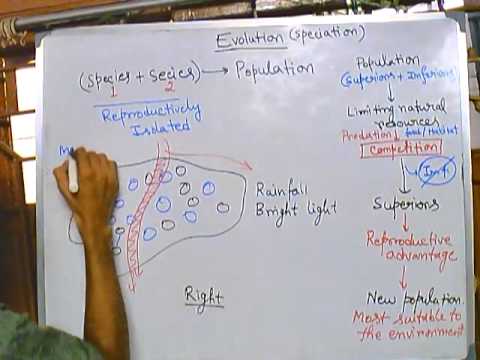 Evolution (speciation)
(Species + Secies) → Population
1 2
Reproductively
Isolated
Rainfall
Bright light
Right
Population
(Superiors + Inferiors)
Limiting natural
resources
Predation food/Habitat
Competition
Infi
Superiors
Reproductive
advantage
New population.
Most suitable to
the environment